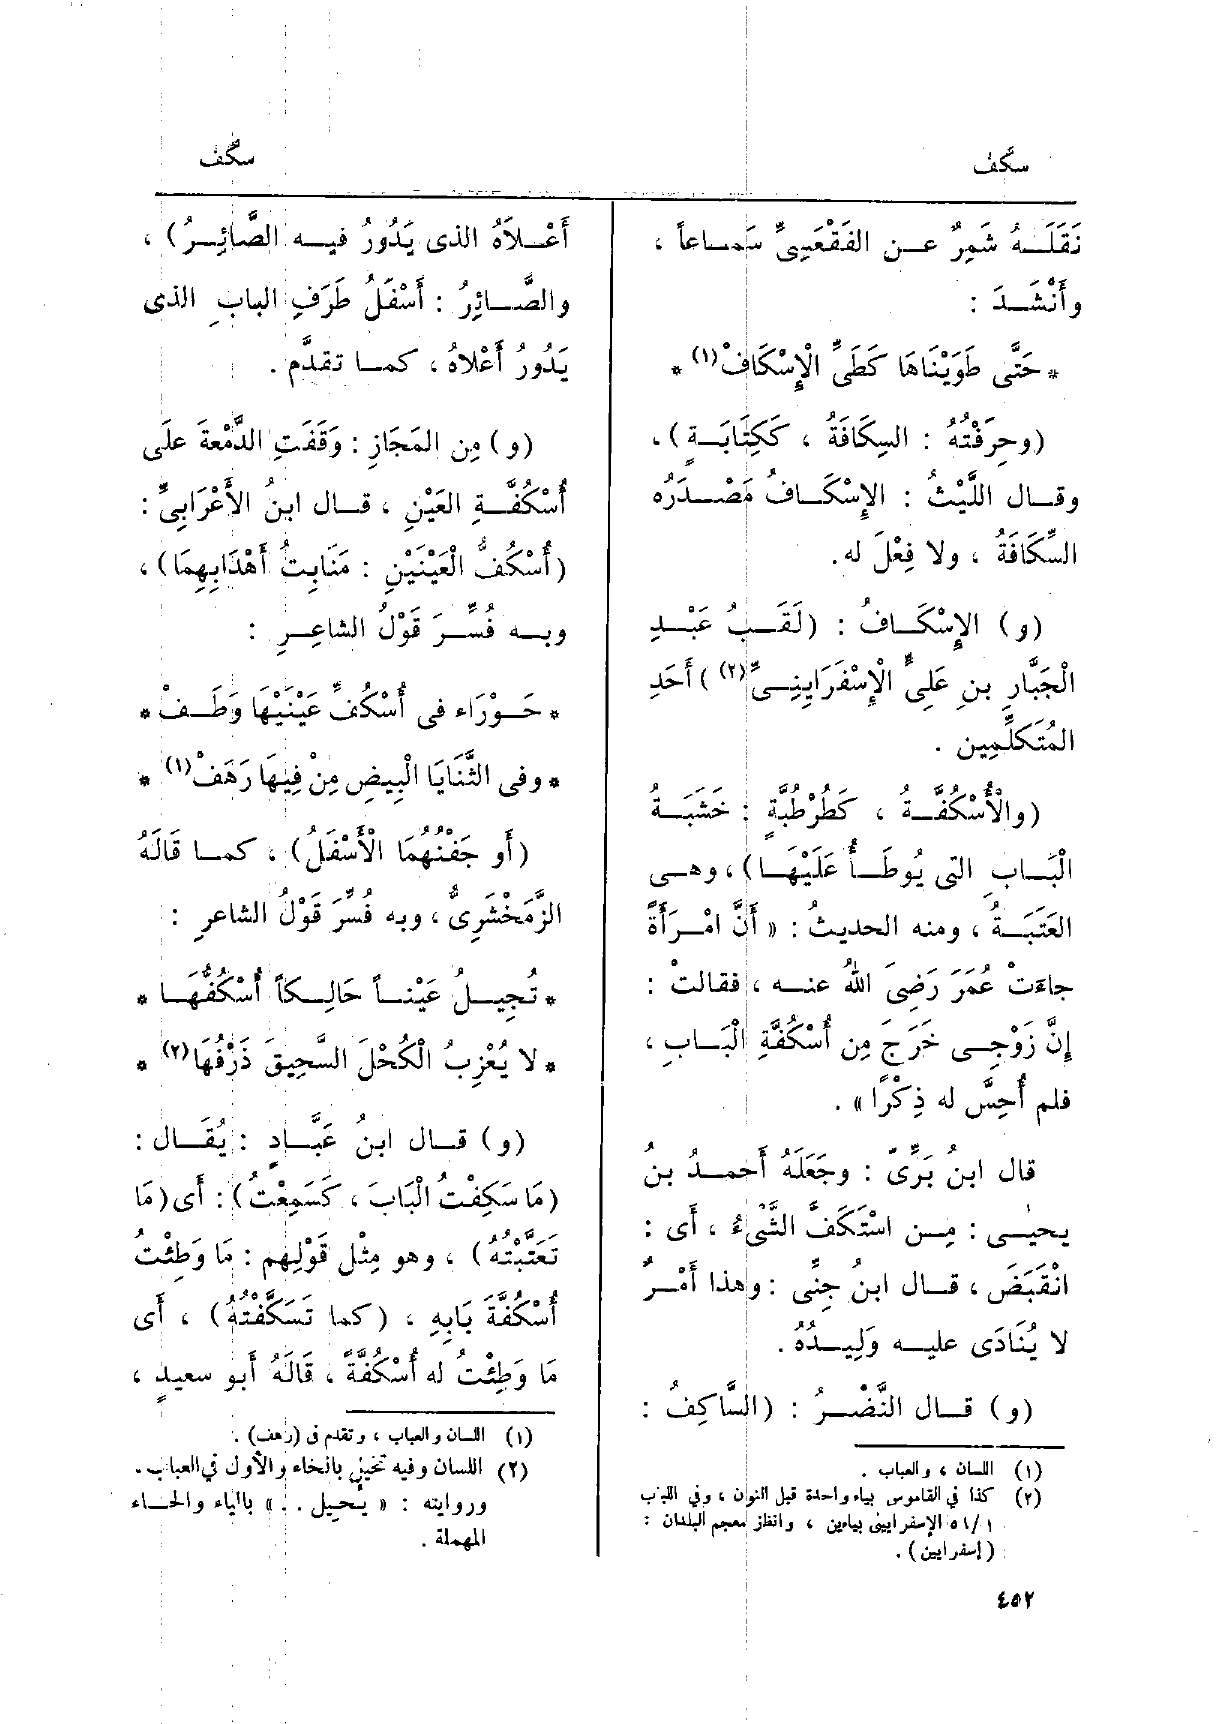 سكف
سكف
نَقَلَـهُ شَمِرٌ عـن الفَقْعَسِىِّ سَمـاعاً ،
وأَنْشَـدَ :
* حَتَّى طَوَيْنَاهَا كَطَىِّ الْإِسْكَافْ(١) *
(وحِرْفَتُهُ : السِكَافَةُ ، كَكِتَابَـةٍ) ،
وقـال اللَّيْثُ : الإِسْكَـافُ مَصْـدَرُه
السِّكَافَةُ ، ولا فِعْلَ له.
(و) الإِسْكَـافُ : (لَقَـبُ عَبْـدِ
الْجَبَّارِ بنِ عَلِىٍّ الْإِسْفَرَايِنِـىِّ(٢)) أَحَدِ
المُتَكلِّمِين .
(والْأُسْكُفَّـةُ ، كَطُرْطُبَّةٍ : خَشَبَـةُ
الْبَـابِ التى يُوطَـأُ عَلَيْهَـا) ، وهـى
العَتَبَـةُ ، ومنه الحديثُ : « أَنَّ امْـرَأَةً
جاءَتْ عُمَرَ رَضِىَ اللهُ عنـه ، فقالتْ :
إِنَّ زَوْجِـى خَرَجَ مِن أُسْكُفَّةِ الْبَـابِ ،
فلم أُحِسَّ له ذِكْرًا » .
قال ابنُ بَرِّىّ : وجَعَلَهُ أَحمـدُ بنُ
يحيـى : مِـن اسْتَكَفَّ الشَّىْءُ ، أَى :
انْقَبَضَ ، قـال ابنُ جِنِّى : وهذا أَمْـرٌ
لا يُنَادَى عليـه وَلِيـدُهُ .
(و) قـال النَّضْـرُ : (السَّاكِفُ :
(١) اللسان ، والعباب .
(٢) كذا فى القاموس بياء واحدة قبل النون ، وفى اللباب
٥٤/١ الإسفرايينى بياءين ، وانظر معجم البلدان :
(إسفرايين) .
أَعْـلاَهُ الذى يَدُورُ فيـه الصَّائِـرُ) ،
والصَّـائِرُ : أَسْفَلُ طَرَفِ البابِ الذى
يَدُورُ أَعْلاهُ ، كمـا تقدَّم .
(و) مِن المَجَازِ : وَقَفَتِ الدَّمْعَةَ علَى
أُسْكُفَّـةِ العَيْنِ ، قـال ابنُ الأَعْرَابِىِّ :
(أُسْكُفُّ الْعَيْنَيْنِ : مَنَابِتُ أَهْدَابِهِمَا) ،
وبـه فُسِّـرَ قَوْلُ الشاعِـرِ :
* حَـوْرَاء فى أُسْكُفِّ عَيْنَيْهَا وَطَـفْ *
* وفى الثَّنَايَا الْبِيضِ مِنْ فِيهَا رَهَفْ(١) *
(أو جَفْنُهُمَا الْأَسْفَلُ) ، كمـا قالَهُ
الزَّمَخْشَرِىُّ ، وبه فُسِّرَ قَوْلُ الشاعرِ :
* تُجِيـلُ عَيْنـاً حَالِـكاً أُسْكُفُّهَـا *
* لا يُعْزِبُ الْكُحْلَ السَّحِيقَ ذَرْفُهَا(٢) *
(و) قـال ابنُ عَبَّـادٍ : يُقَـال :
(مَا سَكِفْتُ الْبَابَ ، كَسَمِعْتُ) : أَى (مَا
تَعَتَّبْتُهُ) ، وهو مِثْل قَوْلِهِم : مَا وَطِئْتُ
أُسْكُفَّةَ بَابِهِ ، (كما تَسَكَّفْتُهُ) ، أَى
مَا وَطِئْتُ له أُسْكُفَّةً ، قَالَهُ أَبو سعيدٍ ،
(١) اللسان والعباب ، وتقدم فى (رهف) .
(٢) اللسان وفيه تخيل بالخاء والأول فى العباب .
وروايته : « يُحيل . . » بالياء والحـاء
المهملة .
٤٥٢